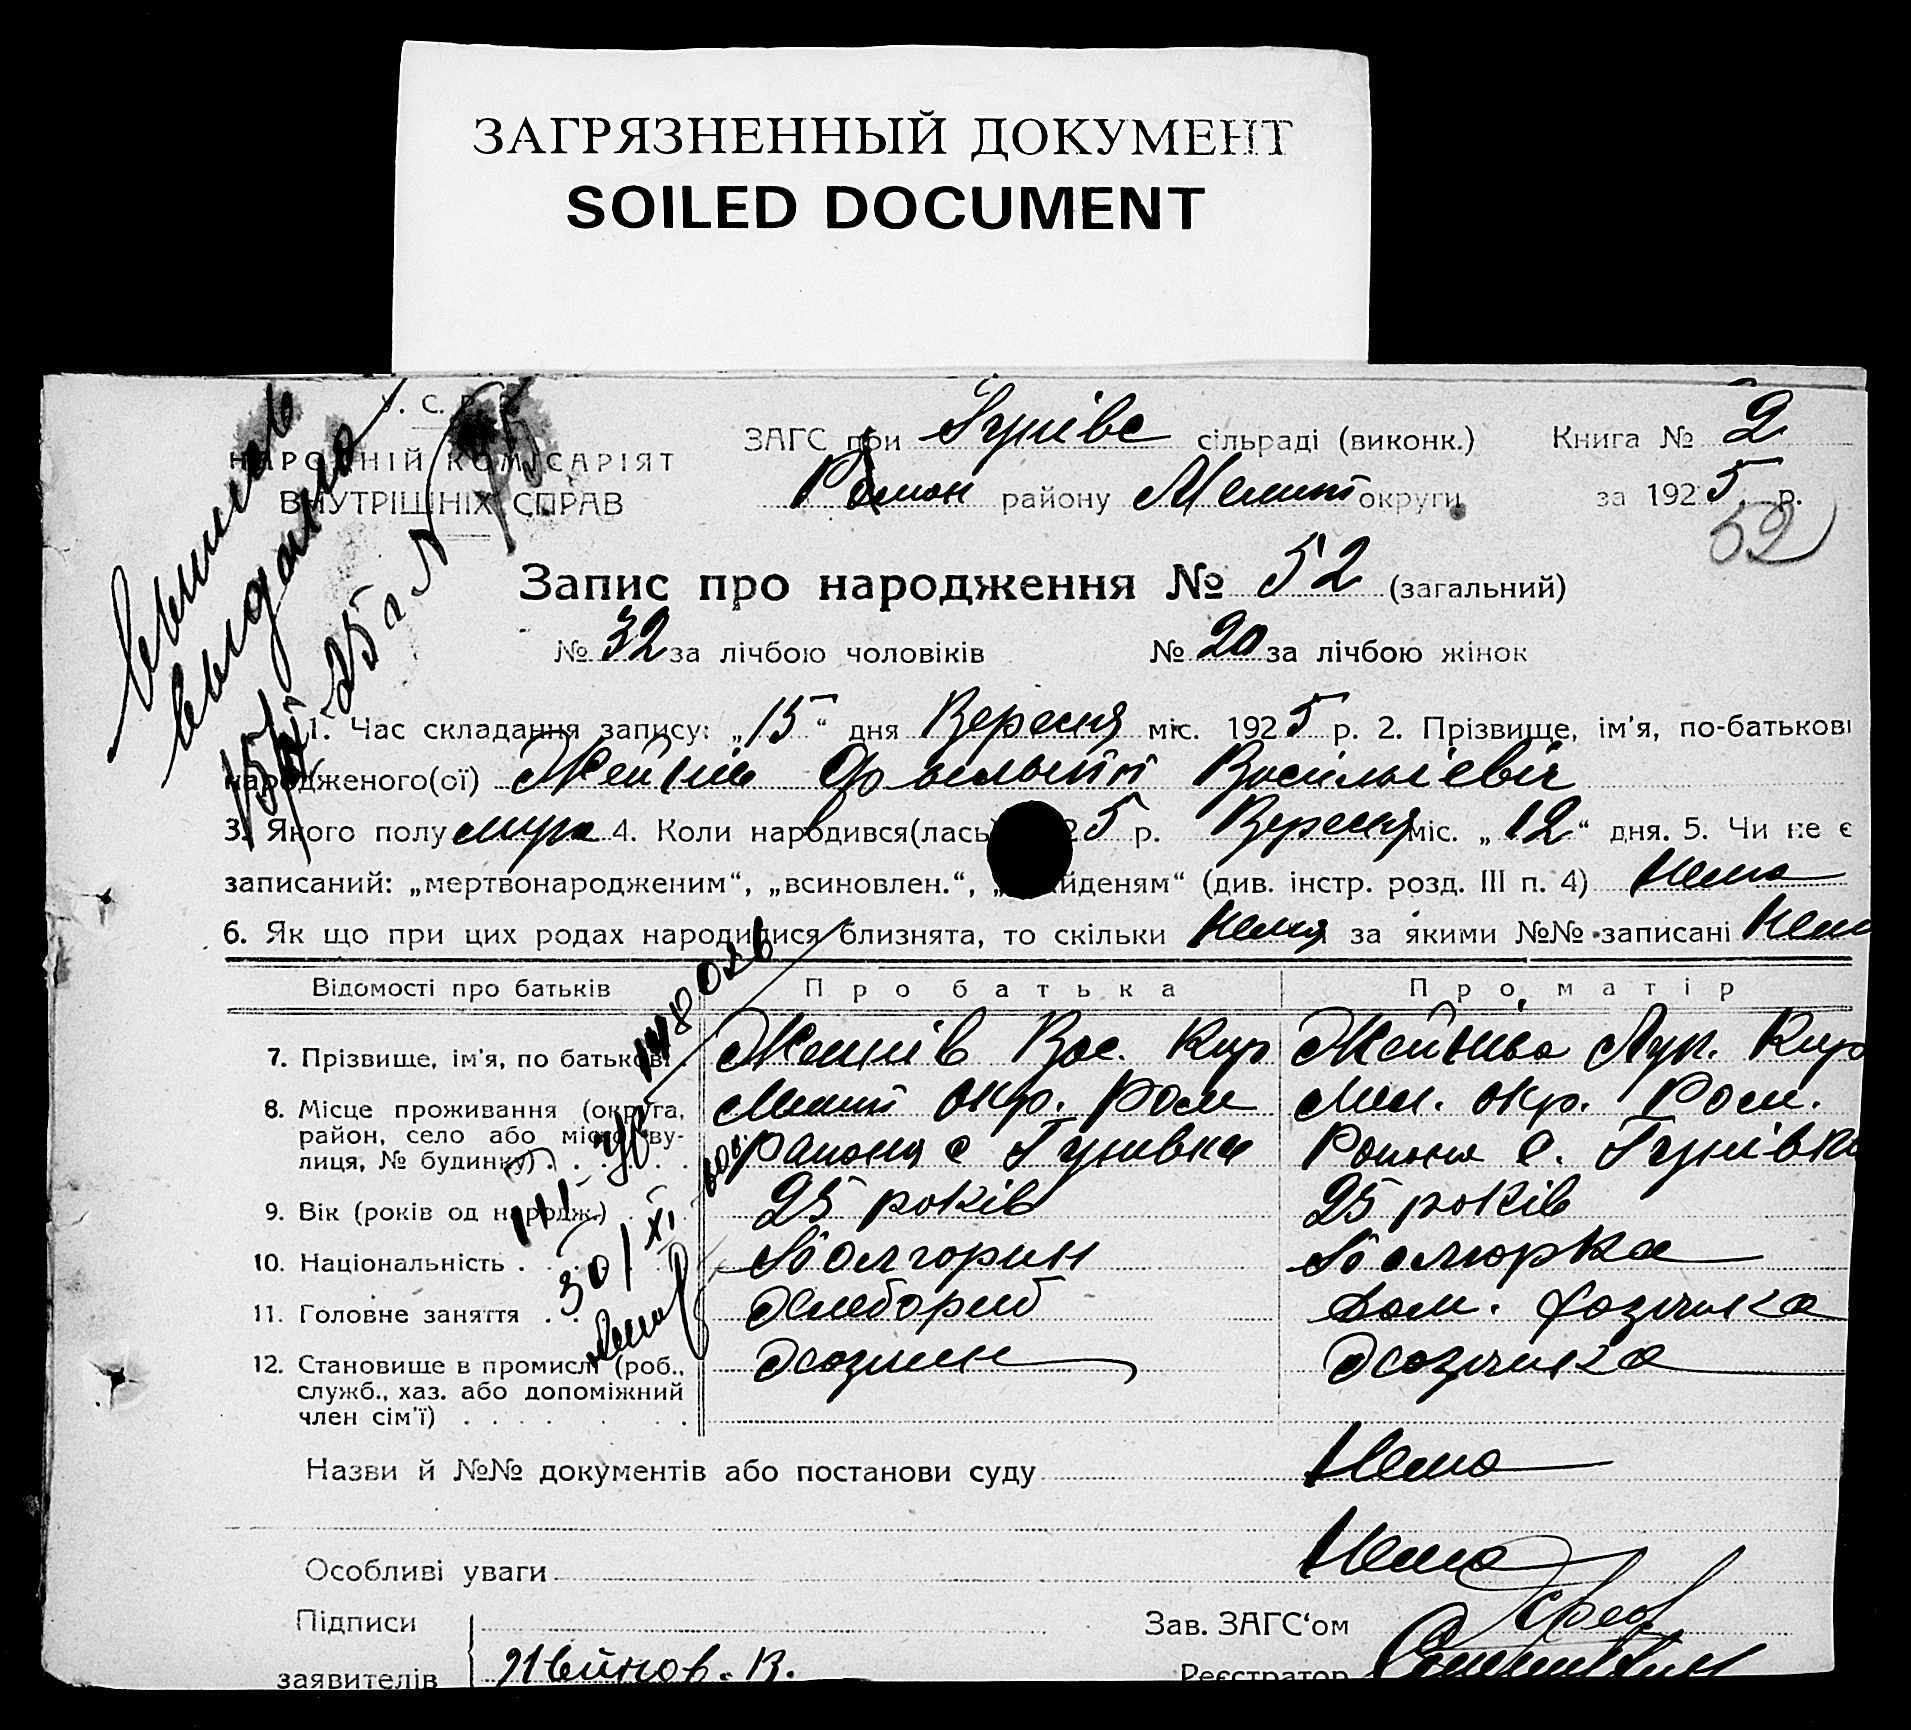 ЗАГРЯЗНЕННЫЙ ДОКУМЕНТ
SOILED DOCUMENT
У. С. Р. Р.
НАРОДНІЙ КОМІСАРІЯТ
ВНУТРІШНІХ СПРАВ
ЗАГС при сільраді (виконк.) Книга № 2
району Мелит округи за 1925 р.
52
Запис про народження № 52 (загальний)
№ 32 за лічбою чоловіків № 20 за лічбою жінок
1. Час складання запису: „15“ дня Вересня міс. 1925 р. 2. Прізвище, ім'я, по-батькові
народженого(ої) Васільіевіч
3. Якого полу муж 4. Коли народився(лась) 25 р. Вересня міс. „12“ дня. 5. Чи не є
записаний: „мертвонародженим“, „всиновлен.“, „ йденям“ (див. інстр. розд. III п. 4) Нема
6. Як що при цих родах народилися близнята, то скільки Нема за якими №№ записані Нем
Відомості про батьків Про батька Про матір
7. Прізвище, ім'я, по батькові . Вас. Кир Жейнова Кир
8. Місце проживання (округа, Мелит окр. Ром Мел. окр. Ром.
район, село або місто, ву- района с Гунивка Района с. Гунівка
лиця, № будинку)
9. Вік (років од народж.) 25 років 25 років
10. Національність . Болгорин Болгорка
11. Головне заняття . . Хлебороб Дом. хозяика
12. Становище в промислі (роб., Хозяин Хозяика
служб., хаз. або допоміжний
член сім'ї)
Назви й №№ документів або постанови суду Нема
Особливі уваги Нема
Підписи Зав. ЗАГС'ом
заявителів Жейнов. В. Реєстратор